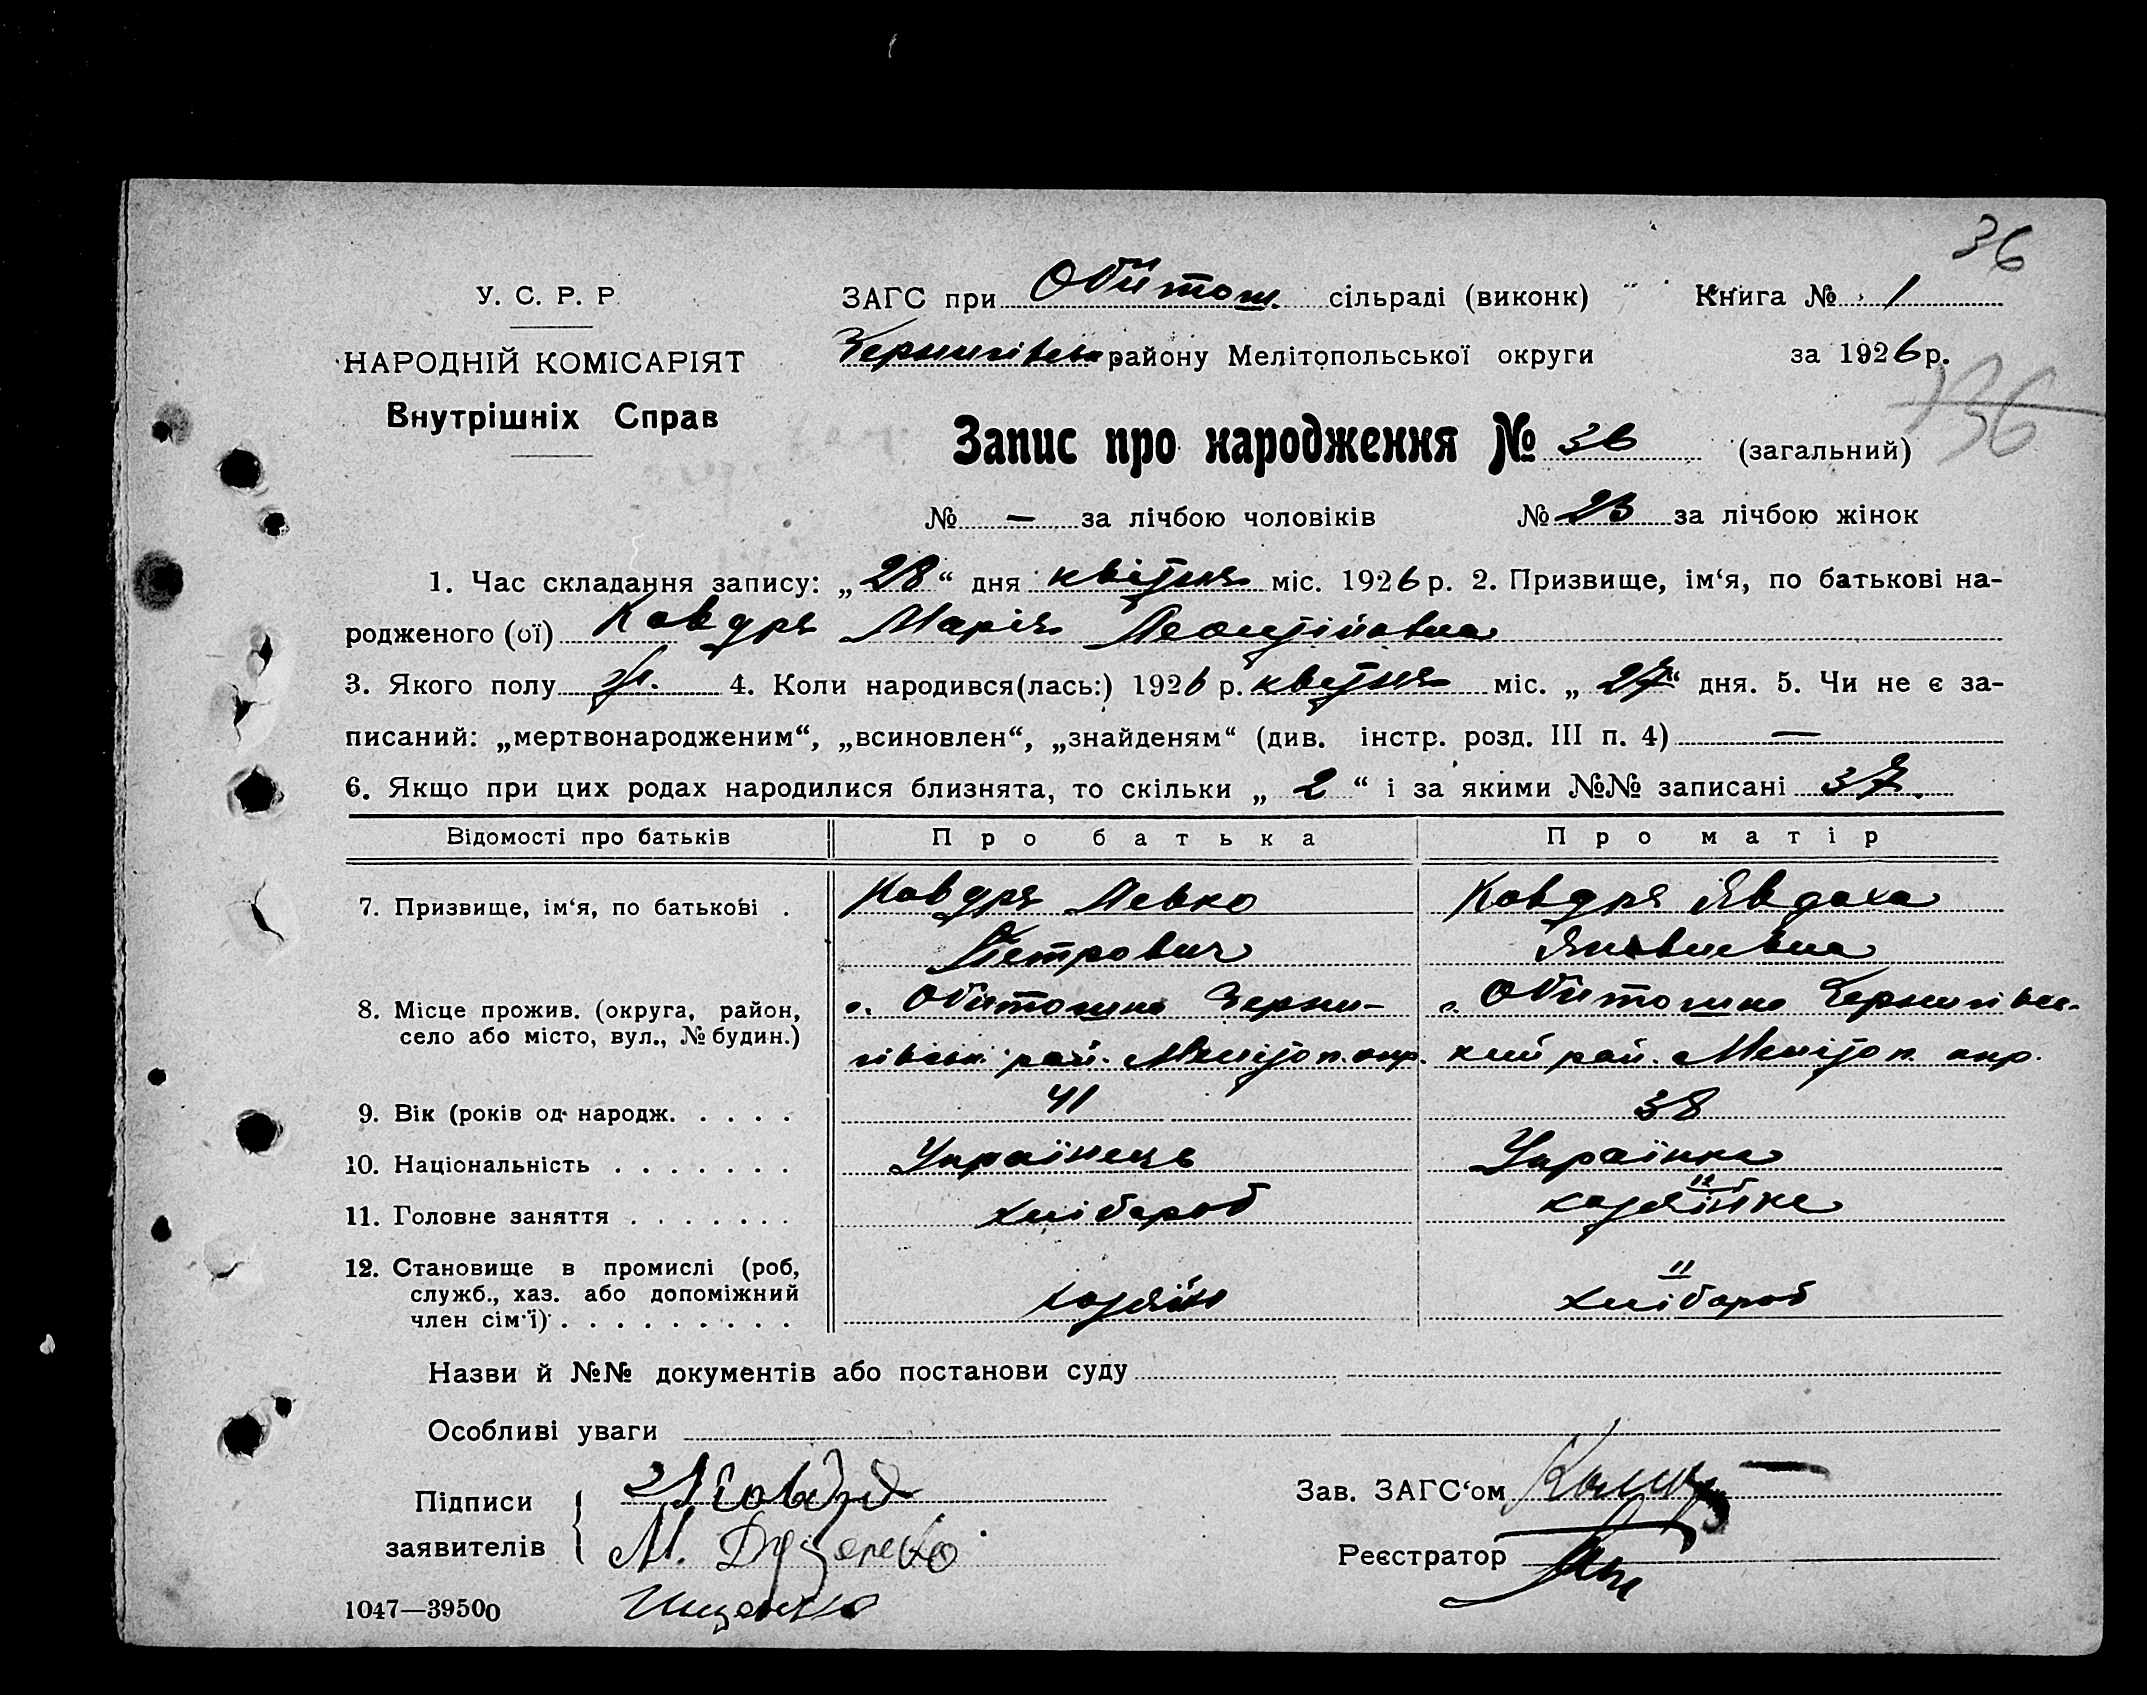 36
У. С. Р. Р
НАРОДНІЙ КОМІСАРІЯТ
Внутрішніх Справ
ЗАГС при Обіточн. сільраді (виконк) Книга № 1
Чернигівськ району Мелітопольської округи за 1926 р.
136
Запис про народження № 36 (загальний)
№ — за лічбою чоловіків № 23 за лічбою жінок
1. Час складання запису: „28“ дня квітня міс. 1926 р. 2. Призвище, ім‘я, по батькові на-
родженого (ої) Ковдря Марія Леонтіївна
3. Якого полу ж. 4. Коли народився(лась:) 1926 р. квітня міс. „27“ дня. 5. Чи не є за-
писаний: „мертвонародженим“, „всиновлен“, „знайденям“ (див. інстр. розд. III п. 4) —
6. Якщо при цих родах народилися близнята, то скільки „2“ і за якими №№ записані 37.
Відомості про батьків Про батька Про матір
7. Призвище, ім‘я, по батькові . Ковдря Левко Ковдря Явдоха
Петрович Яковлевна
8. Місце прожив. (округа, район, с. Обіточне Черни- с. Обіточне Чернигівсь-
село або місто, вул., № будин.)
гівськ. рай. Мелітоп. окр. кий рай. Мелітоп. окр.
9. Вік (років од народж. . . . . 41 38
10. Національність . . . . . . . Українець Українка
11. Головне заняття . . . . . . . хлібороб 12 хазяйка
12. Становище в промислі (роб,
служб., хаз. або допоміжний хазяїн 11 хлібороб
член сім‘ї) . . . . . . . . .
Назви й №№ документів або постанови суду
Особливі уваги
Підписи Ковдря Зав. ЗАГС‘ом
заявителів М. Реєстратор
1047—39500 Ищенко